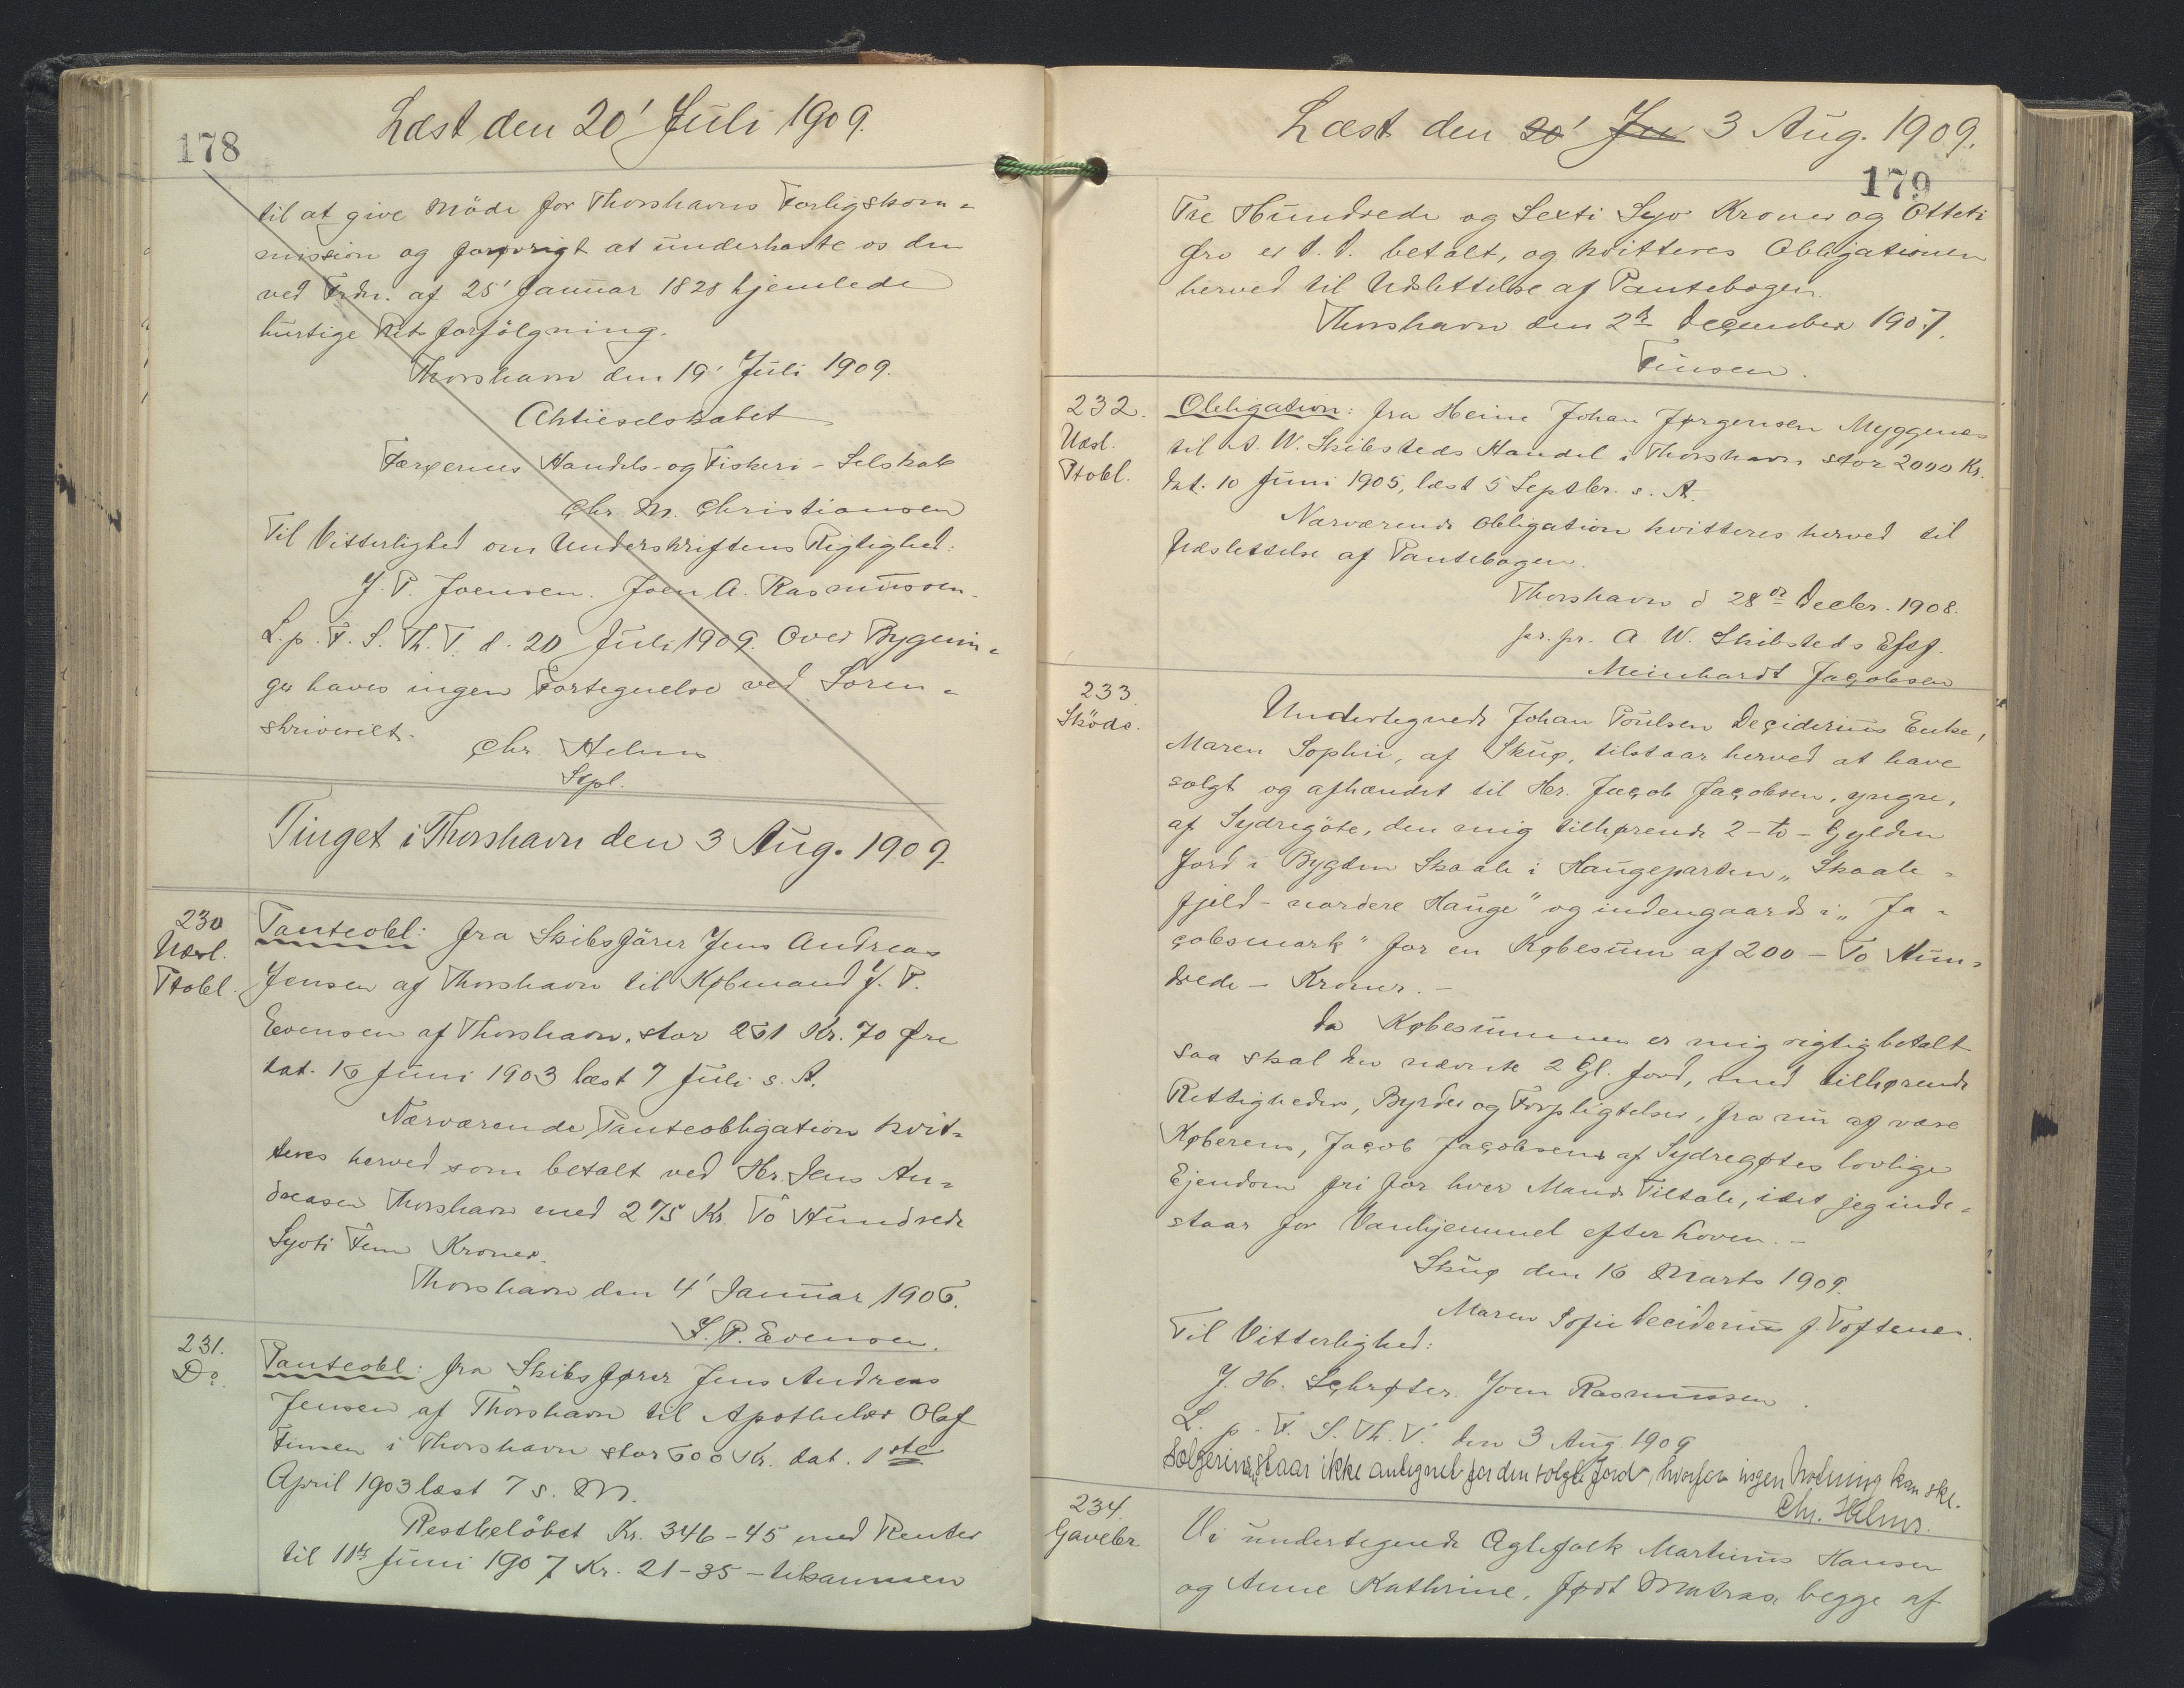 Læst den 20' Juli 1909.
178
til at give Möde for Thorshavns Forligskom=
mission og forøvrigt at underkaste os den
ved Frdn. af 25' Januar 1828 hjemlede
hurtige Retsforfölgning.
Thorshavn den 19' Juli 1909.
Aktieselskabet
Færøernes Handels- og Fiskeri-Selskab
Chr. M. Christiansen
Til Vitterlighed om Underskriftens Rigtighed:
J. P. Joensen. Joen A. Rasmussen.
L. p. F. S. Th. T. d. 20 Juli 1909. Over Bygnin=
ger haves ingen Fortegnelse ved Soren=
skriveriet.
Chr. Helms
Sspl.
Tinget i Thorshavn den 3 Aug. 1909.
230
Udsl.
Ptobl.
Panteobl: fra Skibsfører Jens Andreas
Jensen af Thorshavn til Købmand J. P.
Evensen af Thorshavn, stor 261 Kr. 70 Øre
dat. 16 Juni 1903 læst 7 Juli s. A.
Nærværende Panteobligation kvit=
teres herved som betalt ved Hr. Jens An=
dreasen Thorshavn med 275 Kr. To Hundrede
Syvti Fem Kroner.
Thorshavn den 4' Januar 1906.
J. P. Evensen.
231.
Do.
Panteobl: fra Skibsfører Jens Andreas
Jensen af Thorshavn til Apotheker Olaf
Finsen i Thorshavn stor 600 Kr. dat. 1ste
April 1903 læst 7 s. M.
Restbelöbet Kr. 346-45 med Renter
til 11te Juni 1907 Kr. 21-35 - tilsammen
Læst den 20' Ju 3 Aug. 1909.
179
Tre Hundrede og Sexti Syv Kroner og Otteti
Øre er d. d. betalt, og kvitteres Obligationen
herved til Udslettelse af Pantebogen.
Thorshavn den 2de December 1907.
Finsen.
232.
Udsl.
Ptobl.
Obligation: fra Heine Johan Jørgensen Myggenæs
til A. W. Skibsteds Handel i Thorshavn stor 2000 Kr.
dat. 10 Juni 1905, læst 5 Septbr. s. A.
Nærværende Obligation kvitteres herved til
Udslettelse af Pantebogen.
Thorshavn d 28de Decbr. 1908.
pr. pr. A W. Skibsteds Eftf.
Meinhardt Jacobsen
233.
Sköde.
Undertegnede Johan Poulsen Deciderius Enke,
Maren Sophie, af Skuø, tilstaar herved at have
solgt og afhændet til Hr. Jacob Jacobsen, yngre,
af Sydregöte, den mig tilhørende 2 - to - Gylden
Jord i Bygden Skaale i Haugeparten „Skaale=
fjeld - nordere Hauge" og indengaards i „Ja=
cobsmark" for en Købesum af 200 - To Hun=
drede - Kroner. -
Da Købesummen er mig rigtig betalt
saa skal den nævnte 2 Gl. Jord, med tilhørende
Rettigheder, Byrder og Forpligtelser, fra nu af være
Køberens, Jacob Jacobsens af Sydregøtes lovlige
Ejendom fri for hver Mands Tiltale, idet jeg inde=
staar for Vanhjemmel efter Loven. -
Skuø den 16 Marts 1909.
Maren Sofie Deciderius f. Joftenes.
Til Vitterlighed:
J. H. Schrøter. Joen Rasmussen.
L. p. F. S. Th. V. den 3 Aug. 1909
Sælgerinden staar ikke antegnet for den solgte Jord, hvorfor ingen Notering kan ske.
Chr. Helms.
234.
Gavebr
Vi undertegnede Ægtefolk Martinus Hansen
og Anne Kathrine, født Matras, begge af